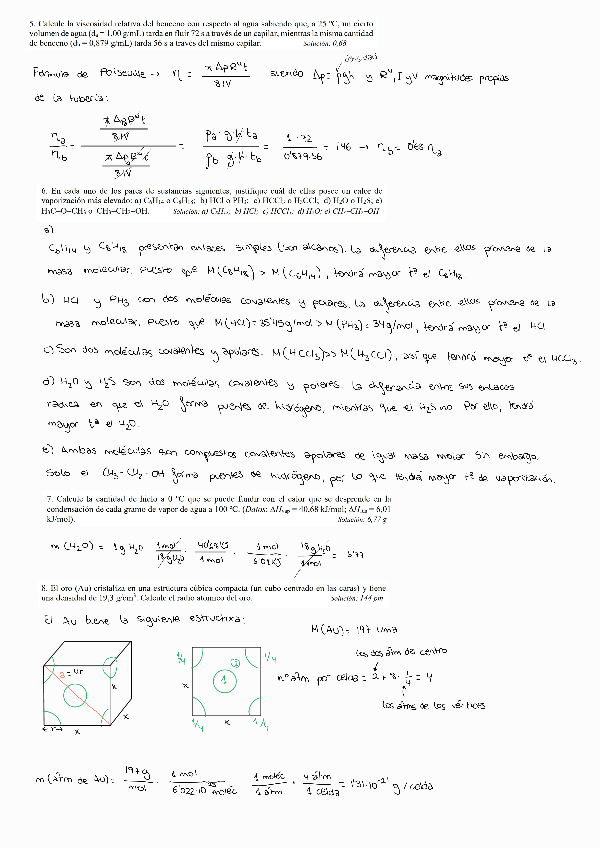 5. Calcule la viscosidad relativa del benceno con respecto al agua sabiendo que, a 25 ºC, un cierto
volumen de agua (dₐ = 1.00 g/mL) tarda en fluir 72 s a través de un capilar, mientras la misma cantidad
de benceno (d = 0,879 g/mL) tarda 56 s a través del mismo capilar. Solución: 0,68
Fórmula de Poiseuille → η = π Δp R⁴ t / 8 l V siendo Δp = ρgh y R⁴, l y V magnitudes propias
de la tubería:
ηa / ηb = (π Δp R⁴ t / 8lV) / (π Δp R⁴ t / 8lV) = ρa · g · h · ta / ρb · g · h · tb = 1 · 72 / 0'879 · 56 = 1'46 → ηb = 0'68 ηa
6. En cada uno de los pares de sustancias siguientes, justifique cuál de ellas posee un calor de
vaporización más elevado: a) C₆H₁₄ o C₈H₁₈; b) HCl o PH₃; c) HCCl₃ o H₃CCl; d) H₂O o H₂S; e)
H₃C–O–CH₃ o CH₃–CH₂–OH. Solución: a) C₈H₁₈; b) HCl; c) HCCl₃; d) H₂O; e) CH₃–CH₂–OH
a)
C₆H₁₄ y C₈H₁₈ presentan enlaces simples (son alcanos). La diferencia entre ellos proviene de la
masa molecular. Puesto que M(C₈H₁₈) > M(C₆H₁₄), tendrá mayor tª el C₈H₁₈.
b) HCl y PH₃ son dos moléculas covalentes y polares. La diferencia entre ellos proviene de la
masa molecular. Puesto que M(HCl) = 35'45g/mol > M(PH₃) = 34g/mol, tendrá mayor tª el HCl
c) Son dos moléculas covalentes y apolares. M(HCCl₃) >> M(H₃CCl), así que tendrá mayor tª el HCCl₃.
d) H₂O y H₂S son dos moléculas covalentes y polares. La diferencia entre sus enlaces
radica en que el H₂O forma puentes de hidrógeno, mientras que el H₂S no. Por ello, tendrá
mayor tª el H₂O.
e) Ambas moléculas son compuestos covalentes apolares de igual masa molar. Sin embargo,
Solo el CH₃-CH₂-OH forma puentes de hidrógeno, por lo que tendrá mayor tª de vaporización.
7. Calcule la cantidad de hielo a 0 ºC que se puede fundir con el calor que se desprende en la
condensación de cada gramo de vapor de agua a 100 ºC. (Datos: ΔHvap = 40,68 kJ/mol; ΔHfus = 6,01
kJ/mol). Solución: 6,77 g
m(H₂O) = 1g H₂O · 1mol / 18g H₂O · 40'68 KJ / 1mol · 1mol / 6'01KJ · 18g H₂O / 1mol = 6'77
8. El oro (Au) cristaliza en una estructura cúbica compacta (un cubo centrado en las caras) y tiene
una densidad de 19,3 g/cm³. Calcule el radio atómico del oro. Solución: 144 pm
El Au tiene la siguiente estructura:
M(Au) = 197 uma
los dos átm de centro
nº átm por celda = 2 + 8 · 1/4 = 4
los átms de los vértices
a = 4r
x
x
x
r
1/4
1/4
1
x
x
1/4
1/4
m(átm de Au) = 197g / mol · 1 mol / 6'022·10²³ moléc · 1 moléc / 1 átm · 4 átm / 1 celda = 1'31·10⁻²¹ g/celda